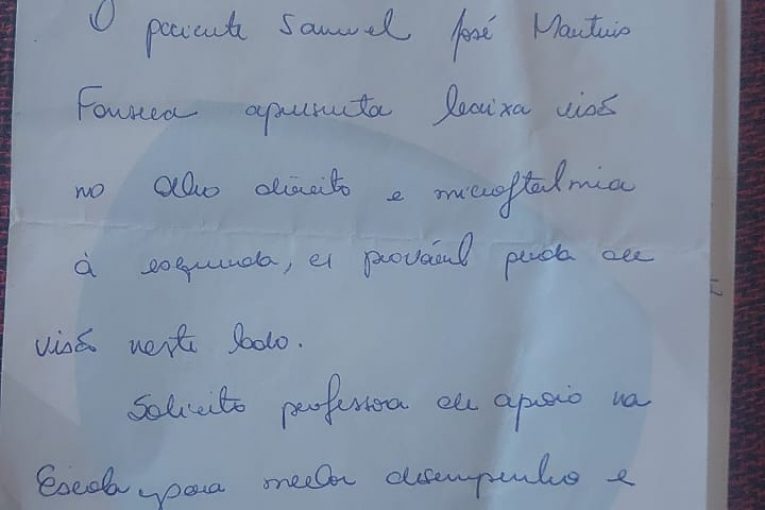 O paciente Samuel José Martins
Fonseca apresenta baixa visão
no olho direito e microftalmia
à esquerda, c/ provável perda de
visão neste lado.
Solicito professora de apoio na
Escola para melhor desempenho e